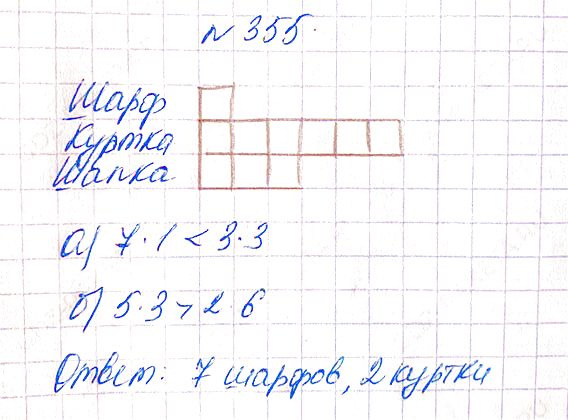 № 355.
Шарф
Куртка
Шапка
а) 7·1 < 3·3
б) 5·3 > 2·6
Ответ: 7 шарфов, 2 куртки